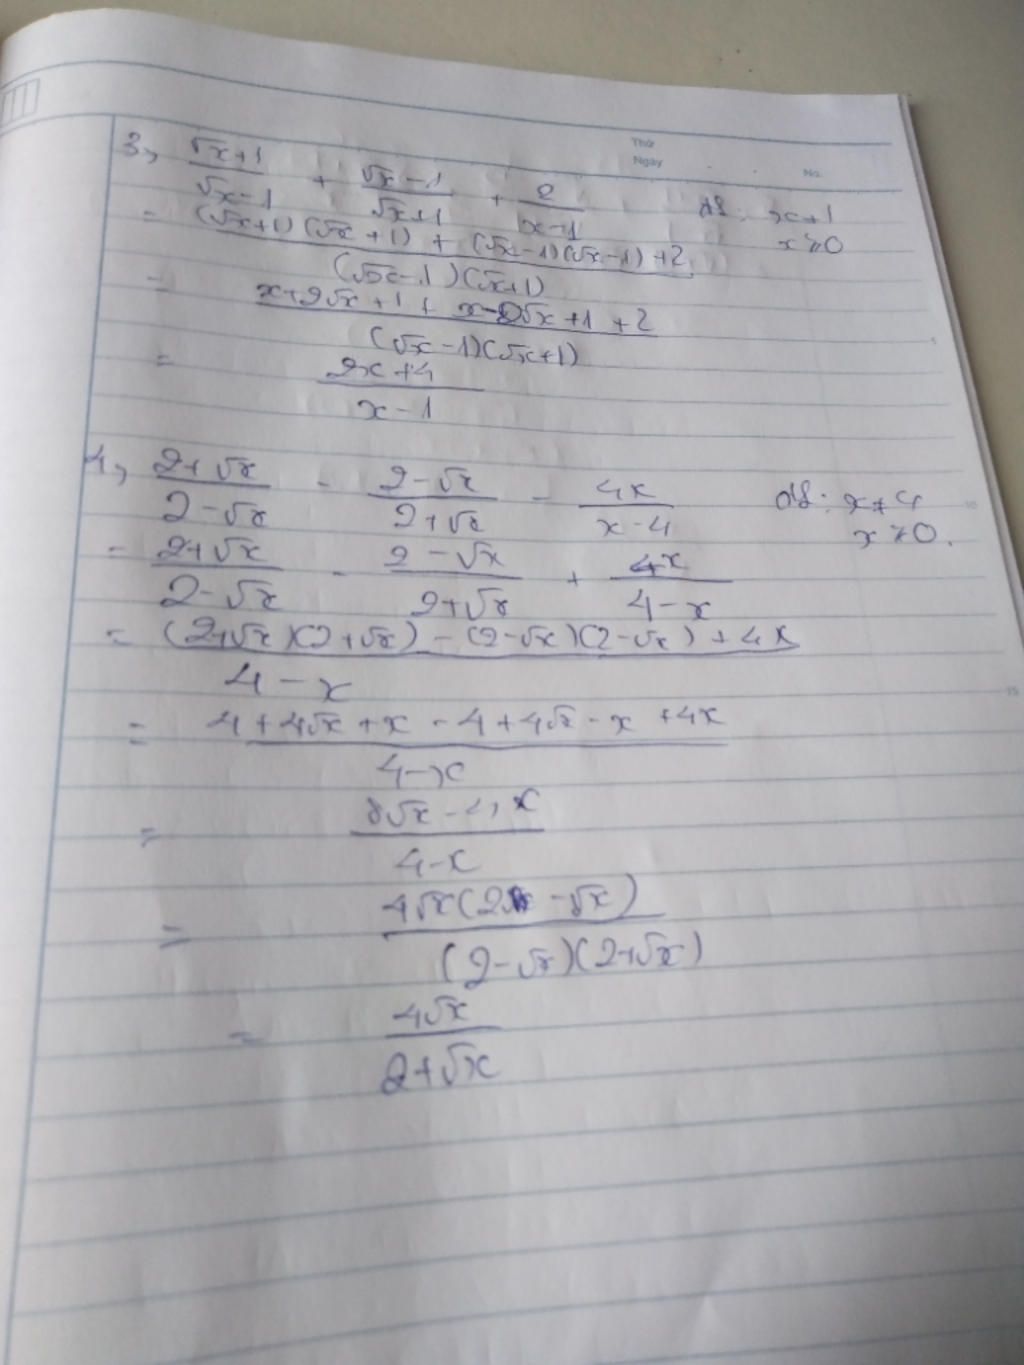 Thứ
Ngày
No.
3, (√x+1)/(√x-1) + (√x-1)/(√x+1) + 2/(x-1) đk: x≠1
x≥0
= ((√x+1)(√x+1) + (√x-1)(√x-1)+2)/((√x-1)(√x+1))
= (x+2√x+1+x-2√x+1+2)/((√x-1)(√x+1))
= (2x+4)/(x-1)
4, (2+√x)/(2-√x) - (2-√x)/(2+√x) - 4x/(x-4) đk: x≠4
x≥0.
= (2+√x)/(2-√x) - (2-√x)/(2+√x) + 4x/(4-x)
= ((2+√x)(2+√x) - (2-√x)(2-√x) + 4x)/(4-x)
= (4+4√x+x-4+4√x-x+4x)/(4-x)
= (8√x-4x)/(4-x)
= (4√x(2-√x))/((2-√x)(2+√x))
= 4√x/(2+√x)